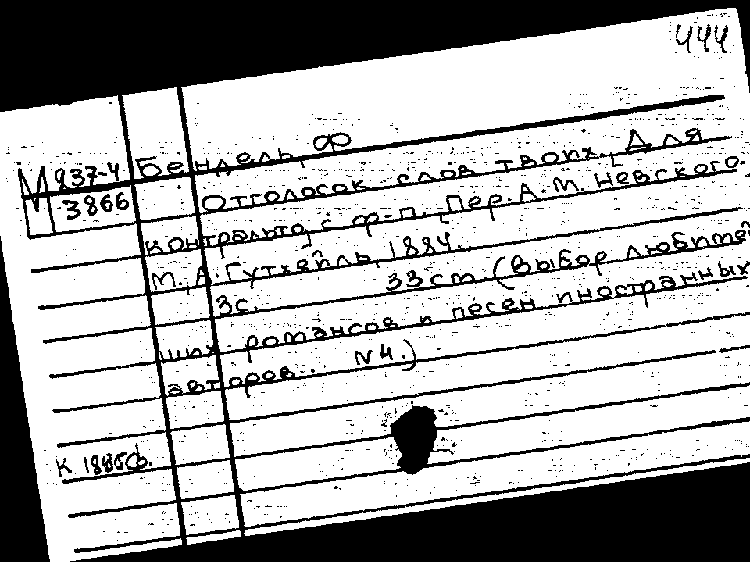 444
М 937-4 Бендель, Ф
3866 Отголосок слов твоих. [Для
контральто] с ф-п. [Пер. А.М. Невского.
М., А. Гутхейль, 1884.
3с. 33cm (Выбор любите
ших романсов и песен иностранных
авторов. N4.)
К 1885ф.